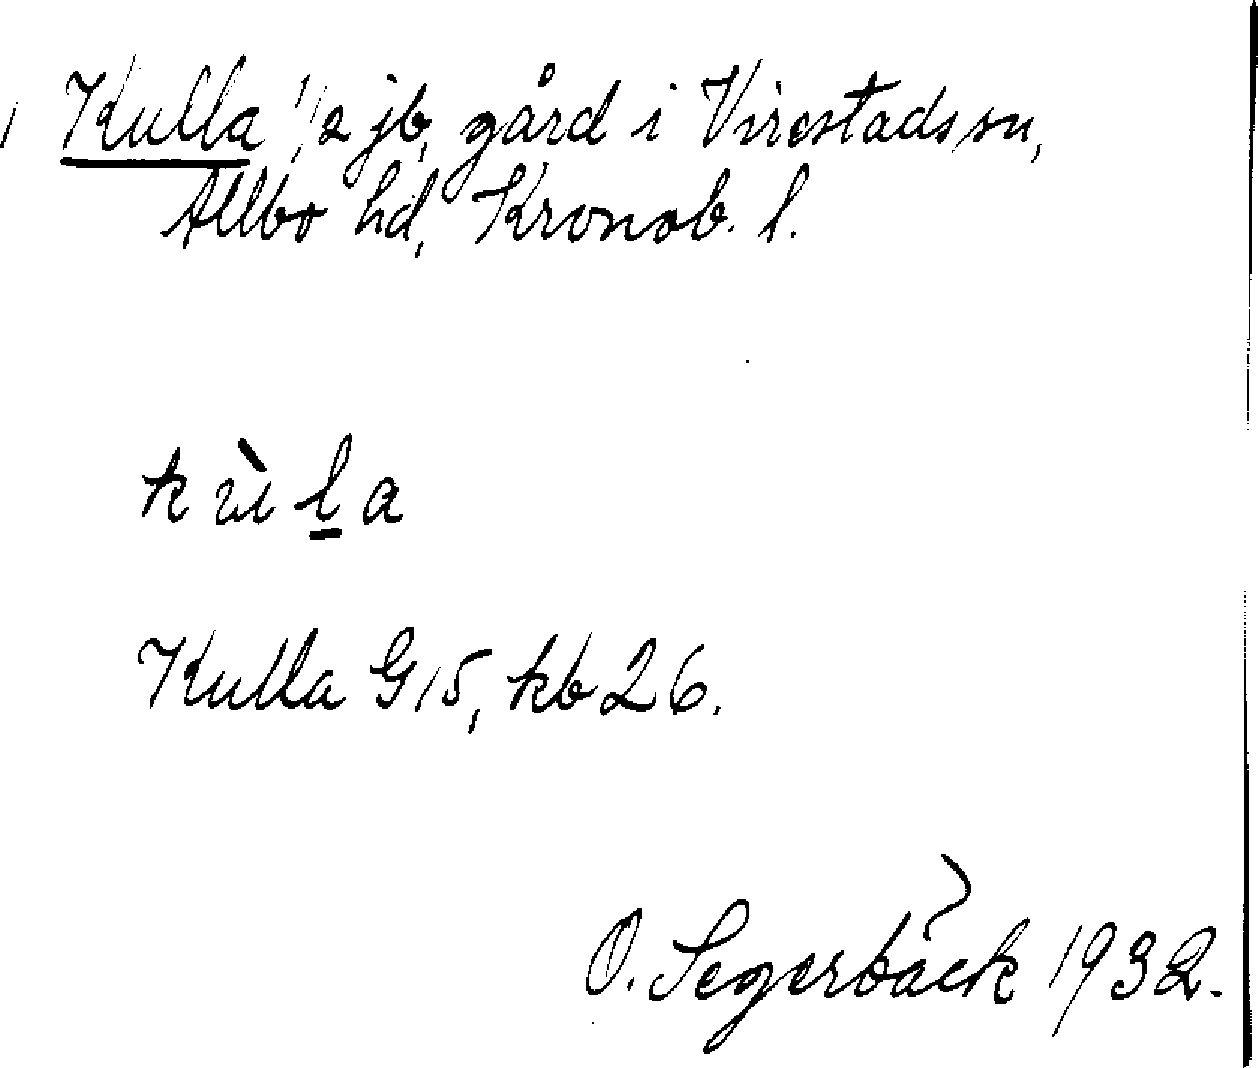 Kulla 1/2 jb, gård i Virestads sn,
Allbo hd, Kronob. l.
kùl̲a
Kulla G15, kb 26.
O. Segerbäck 1932.